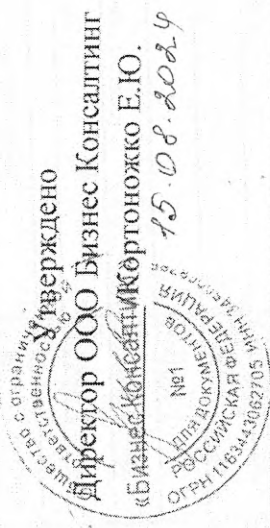 Утверждено
Директор ООО Бизнес Консалтинг
Кортоножко Е.Ю.
15.08.2024
общество с ограниченной
ответственностью
«Бизнес Консалтинг»
№1
ДЛЯ ДОКУМЕНТОВ
РОССИЙСКАЯ ФЕДЕРАЦИЯ
ОГРН 1163443062705 ИНН